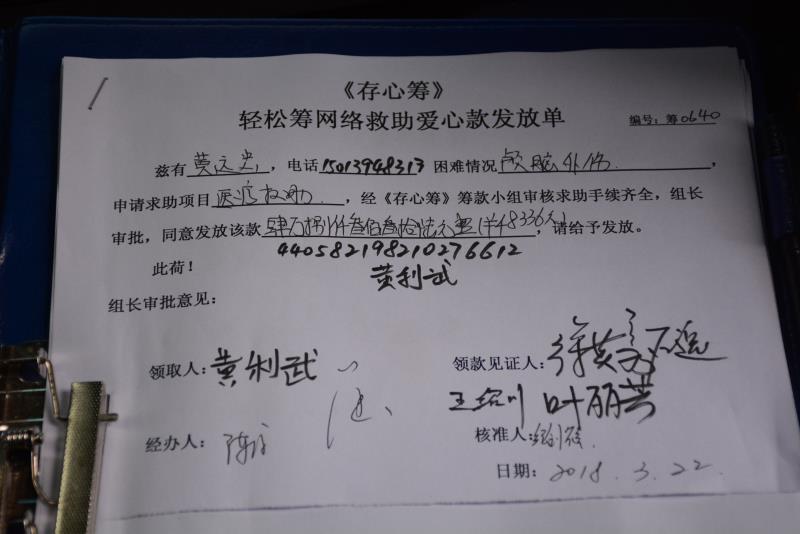 《存心筹》
轻松筹网络救助爱心款发放单
编号：筹0640
兹有黄，电话15013948313 困难情况颅脑外伤，
申请求助项目医疗救助，经《存心筹》筹款小组审核求助手续齐全，组长
审批，同意发放该款肆万捌仟叁佰叁拾陆元整(羊48336元)，请给予发放。
440582198210276612
此荷！
黄利武
组长审批意见：
领取人：黄利武
领款见证人：
叶丽芸
经办人：陈
核准人：
日期：2018.3.22